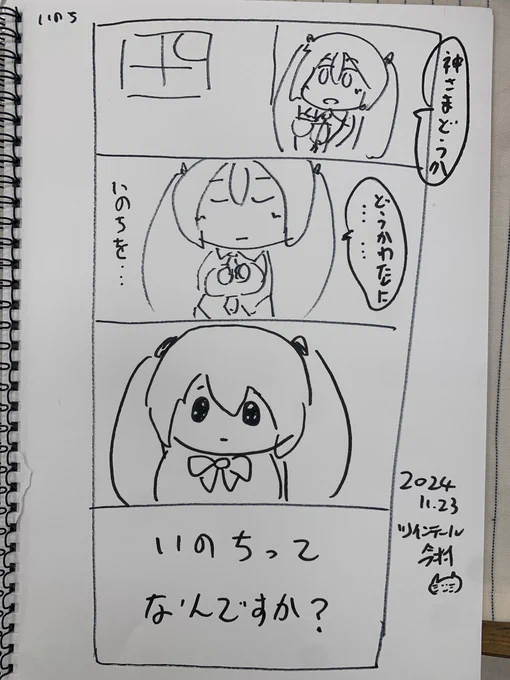 いのち
神さまどうか
どうかわたしに
… …
いのちを…
いのちって
なんですか?
2024
11.23
ツインテール
今村